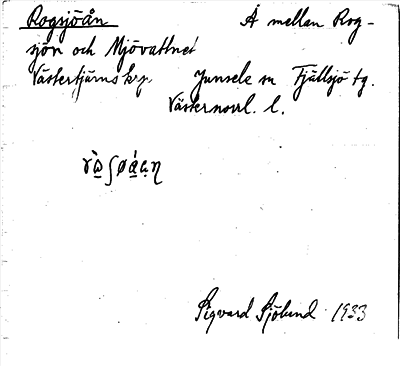 Rogsjöån Å mellan Rog-
sjön och Mjövattnet
Västertjärns krp Junsele sn Fjällsjö tg.
Västernorrl. l.
Sigvard Sjölund 1933